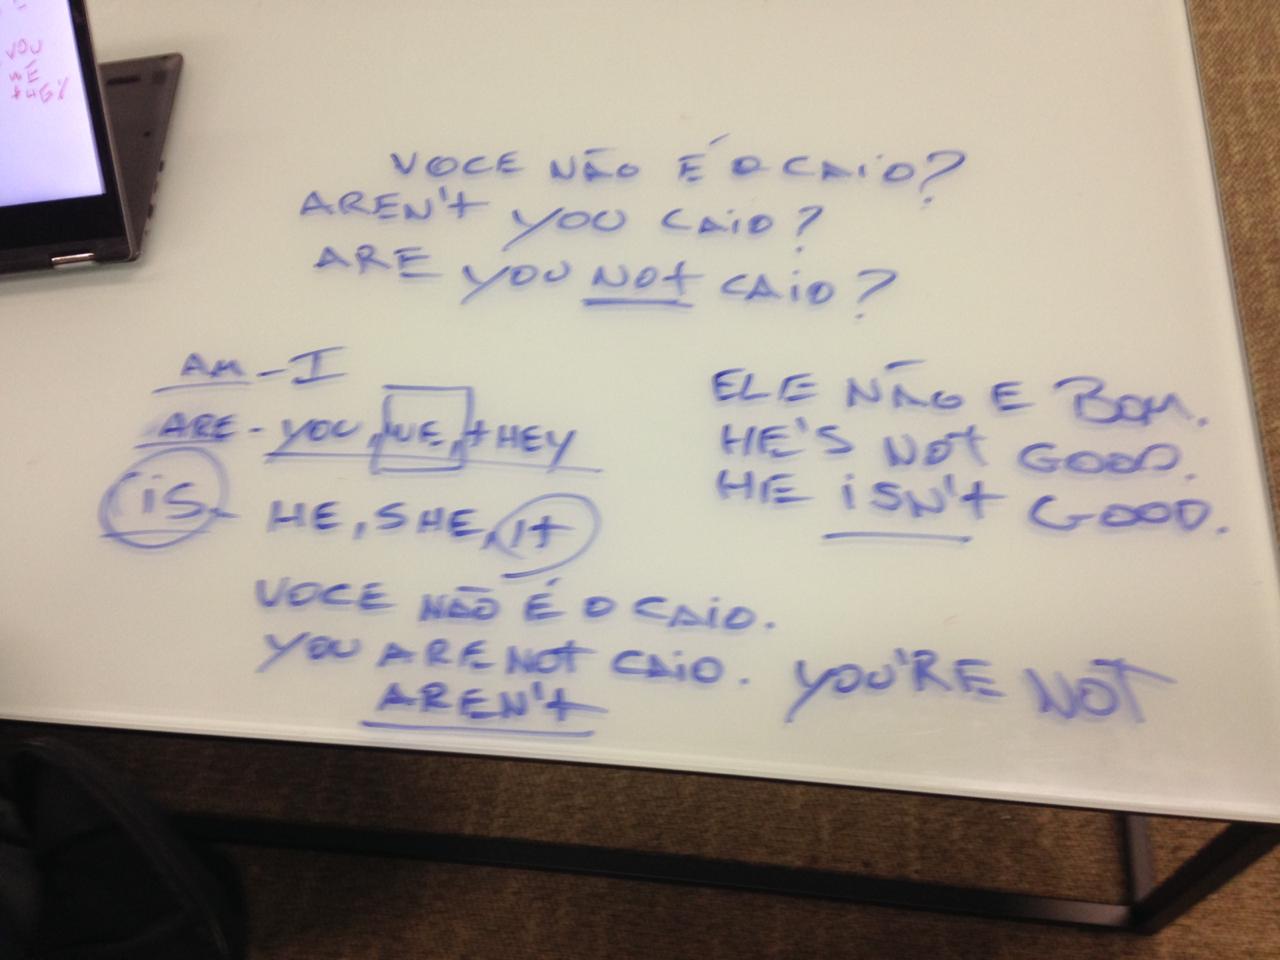 VOU
WE
tHEY
VOCE NÃO É O CAiO?
AREN't YOU CAiO?
ARE YOU NOt CAiO?
AM - I
ARE - YOU, WE, tHEY
iS - HE, SHE, it
ELE NÃO E BOM.
HE'S NOt GOOD.
HE iSN't GOOD.
VOCE NÃO É O CAiO.
YOU ARE NOt CAiO. YOU'RE NOT
AREN't